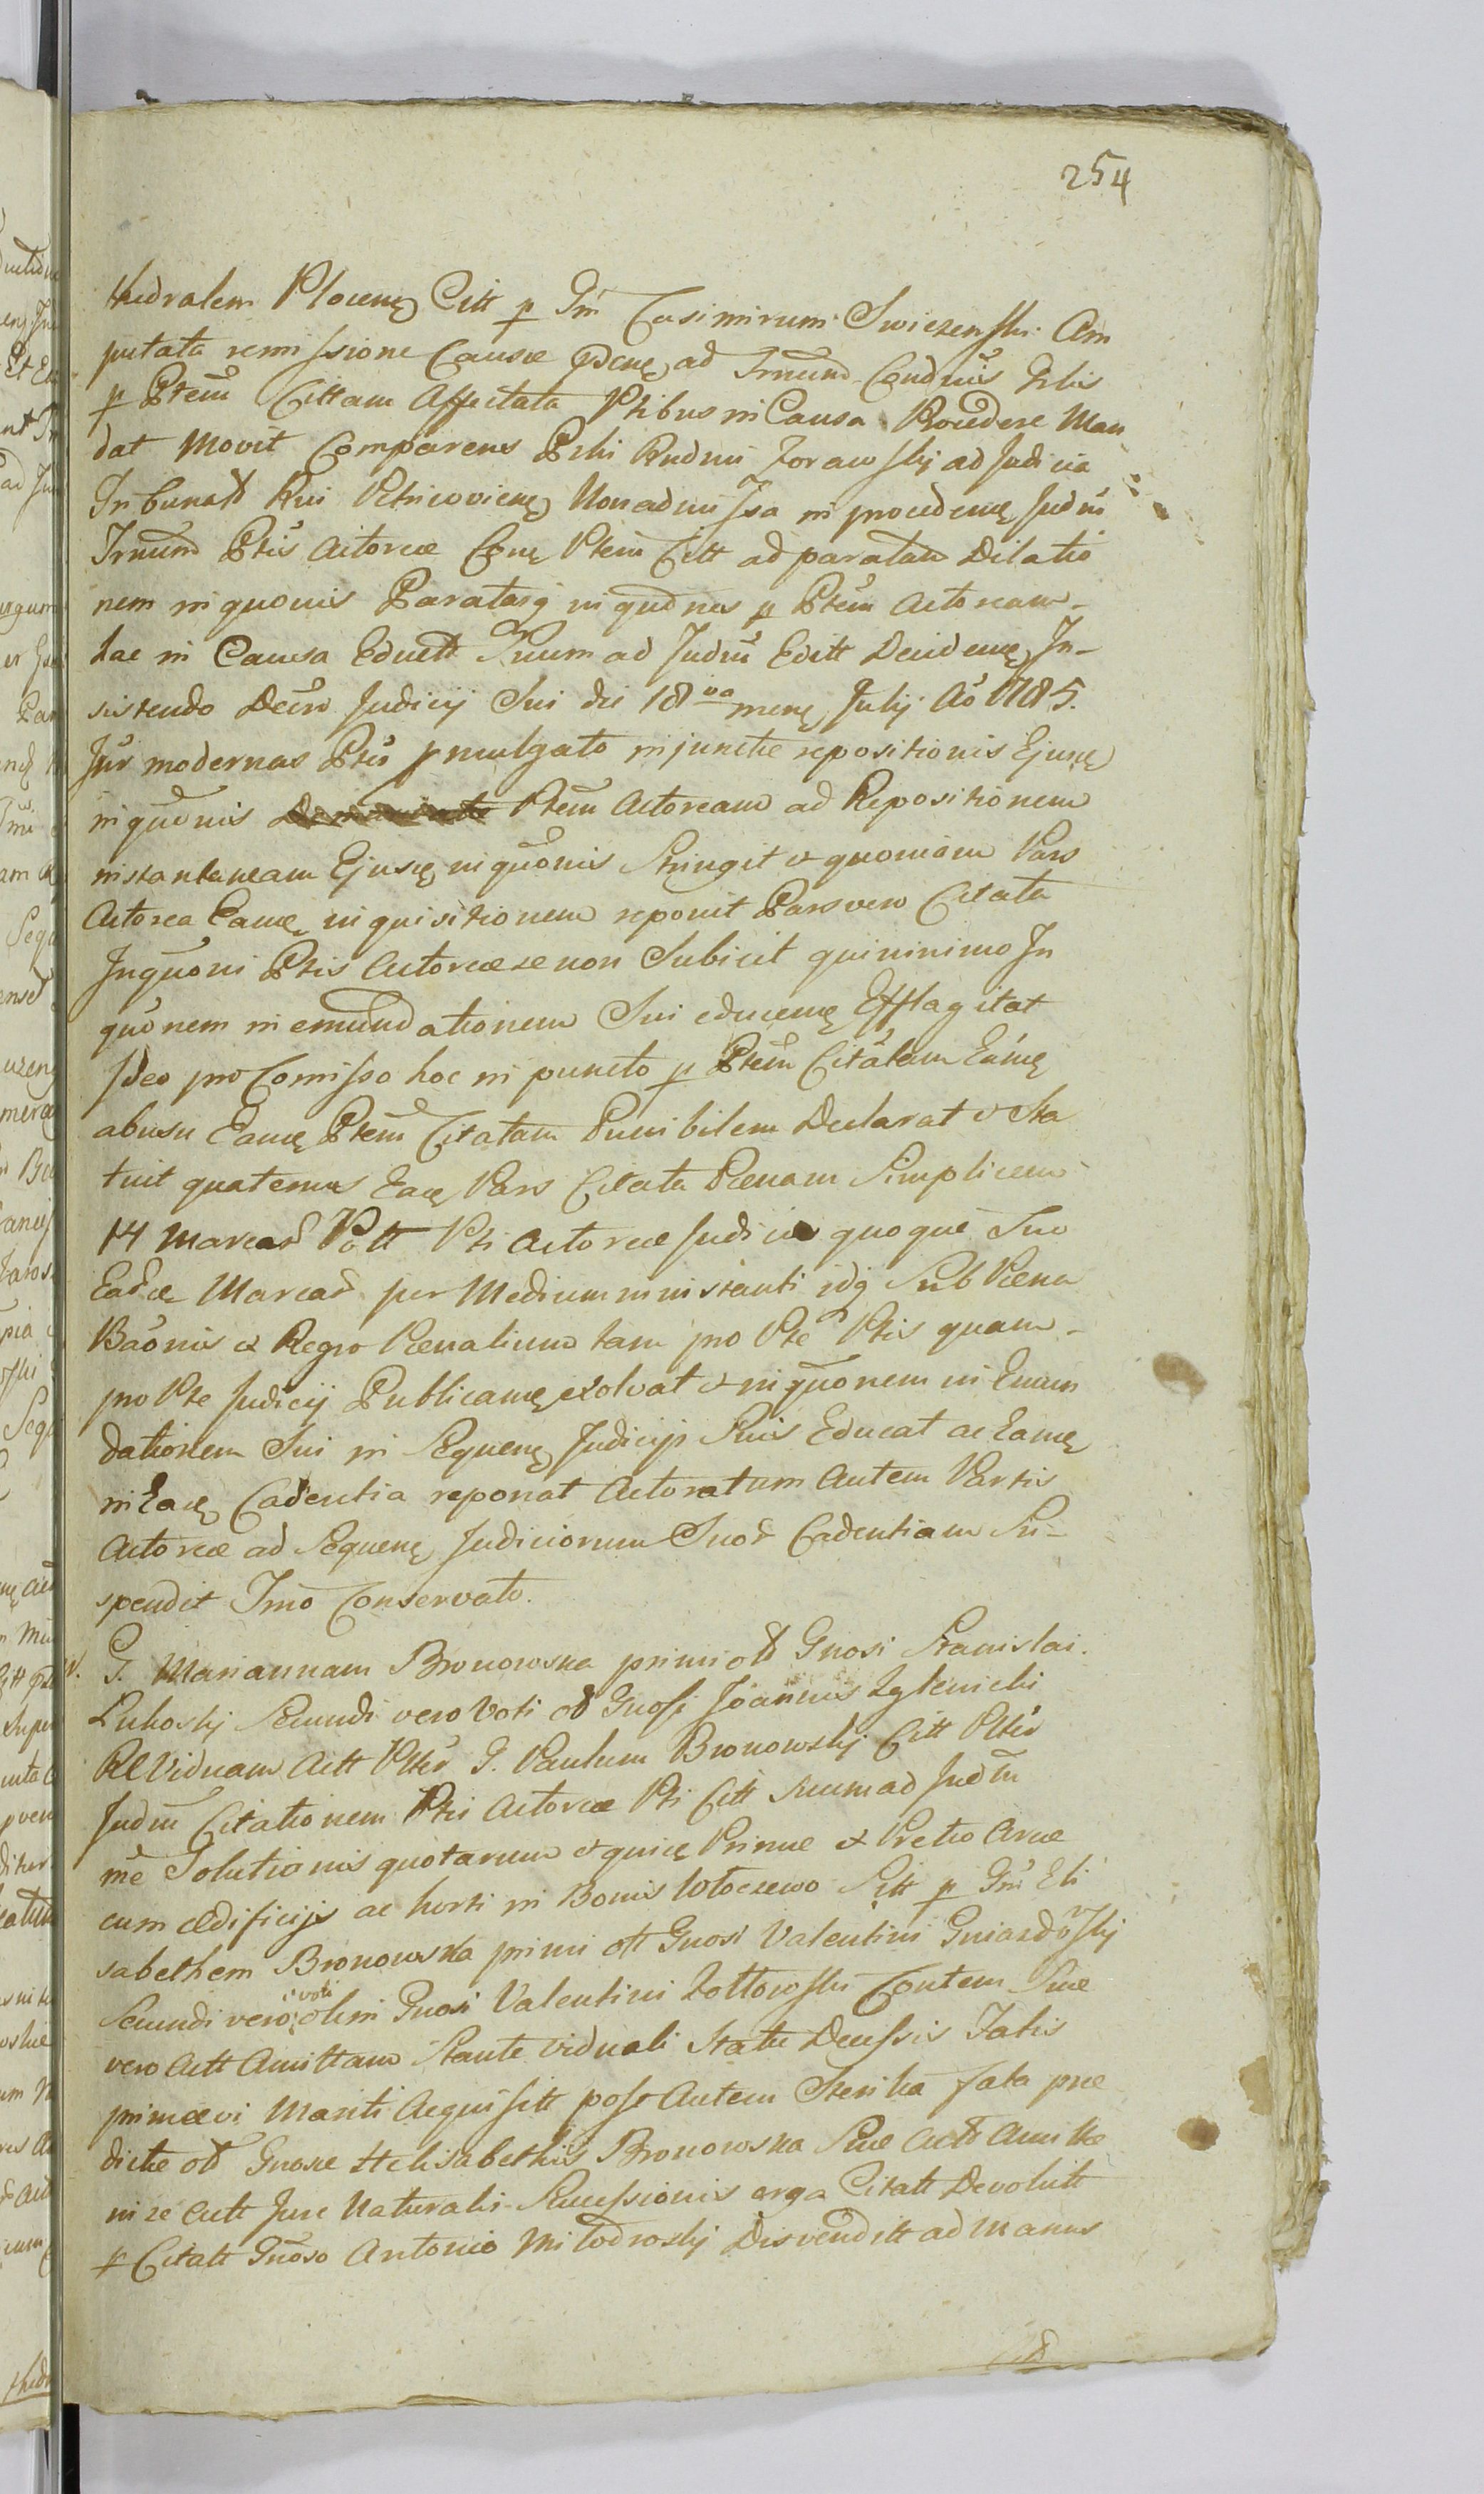 254
thedralem Plocenę Citt p Gm Casimirum Swiezenski Am
putata remissione Causæ Pdenę ad Irmund Condnis Grlis
p Ptem Cittam Affectata Ptibus in Causa Procedere Man
dat Movit Comparens Prhi Rndmi Zorawskj ad Judicia
Tribunalt Rni Petricovienę Non admissa in procedenę Judm
Irmund Ptis Actoreæ Conę Ptem Citt ad paratam Dilatio
nem inquonis Paratasq inqudnes p Ptem Actoream
hac in Causa Eductt Suum ad Judm Editt Decidenę In-
sistendo Decro Judicij Sui die 18va menę Julij Ao 1785.
Jnr modernas Ptes pmulgato injunctæ repositionis Ejusę
inqudnis Ptem Actoream ad Repositionem
instantaneam Ejusę inquonis Stringit & quoniam Pars
Actorea Eamę inquisitionem reponit Pars vero Citata
Inquoni Ptis Actoreæ se non Subicit quininimo In
quonem in emundationem Sui educenę Efflagitat
Ideo pro Comisso hoc in puncto p Ptem Citatam Eamę
abusu Eamę Ptem Citatam Punibilem Declarat & Sta
tuit quatenus Eaę Pars Citata Pœnam Simplicem
14 Marcar Poll Pti Actoreæ Judicio quoque Suo
Easdę Marcas per Medium instanti idq Sub Pœna
Baonis & Regro Pœnalium tam pro Pte Ptis quam
pro Pte Judicij Publicamę exolvat & inquonem in Emun
dationem Sui in Sequenę Judicijs Suis Educat ac Eamę
in Eaę Cadentia reponat Actoratum Autem Partis
Actoreæ ad Sequenę Judiciorum Suor Cadentiam Su-
spendit Irmo Conservato.
G. Mariannam Bronowska primi olt Gnosi Stanislai
Lukoskj Secundi vero Voti olt Gnosi Joannis Zglenicki
RlViduam Actt Ptter G. Paulum Bronowskj Citt Ptter
Judm Citationem Ptis Actoreæ Pti Citt Suum ad Judm
me Solutionis quotarum & quię Primæ & Pretio Areæ
cum ædificijs ac horti in Bonis Wtoczewo Sitt p Gm Eli
sabethem Bronowska primi olt Gnosi Valentini Gniazdowskj
Secundi vero voti olim Gnosi Valentini Zottowski Contem Suæ
vero Actt Amittam Stante viduali Statu Decessis Fatis
primævi Mariti Acquisitt post Autem Sterilia fata præ
dictæ olt Gnosæ Helisabethis Bronowska Suæ Actt Amitæ
in se Actt Jure Naturalis Successionis erga Citatt Devolutt
p Citatt Gnoso Antonio Mitodroskj Disvenditt ad Manus